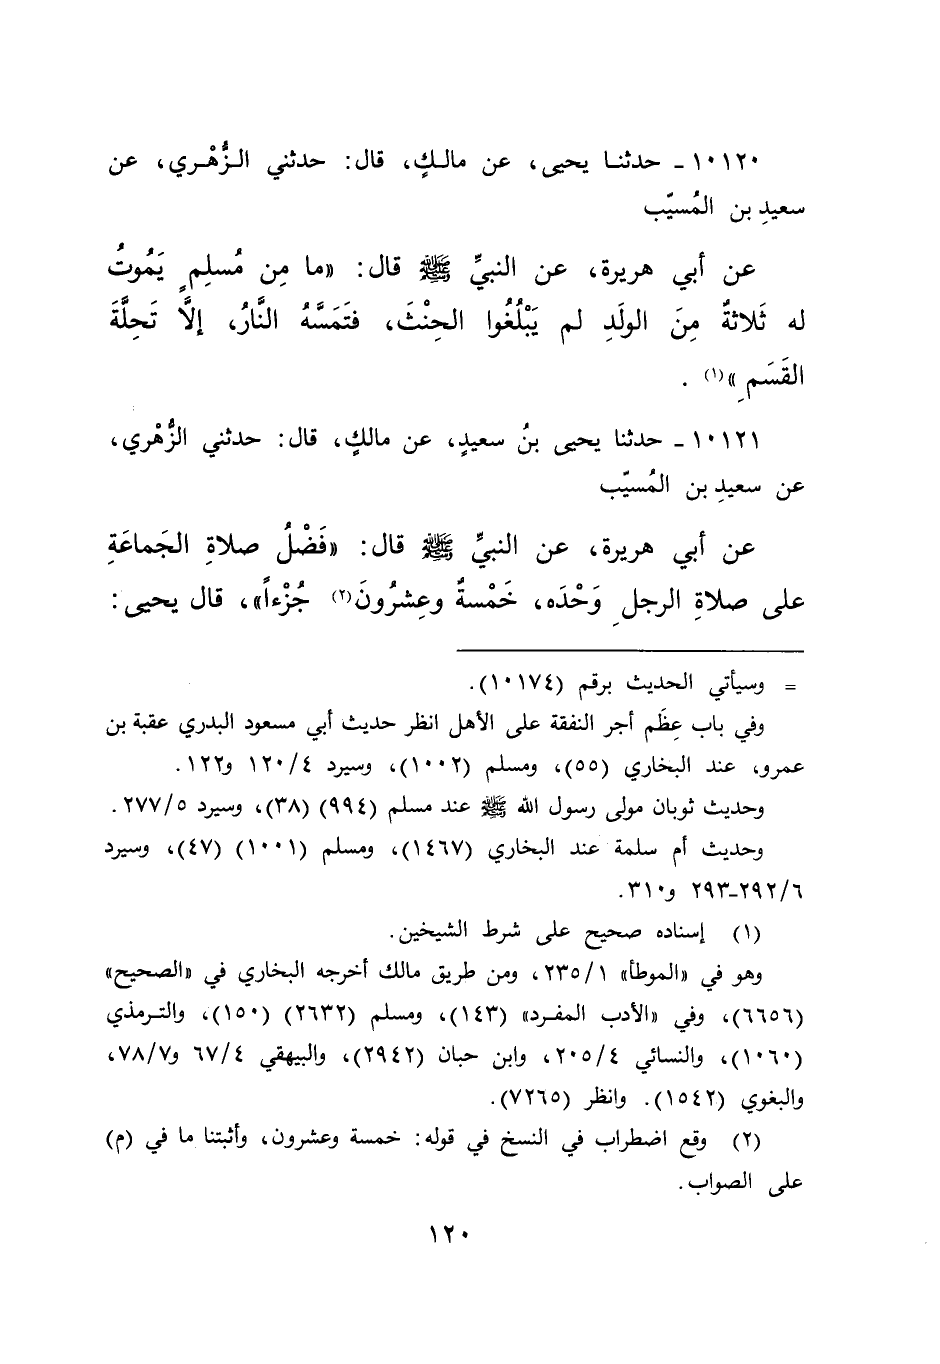 ١٠١٢٠ ـ حدثنـا يحيى، عن مالـكٍ، قال: حدثني الـزُّهْـري، عن
سعيدِ بن المُسيّب
عن أبي هريرة، عن النبيِّ ﷺ قال: «ما مِن مُسلِمٍ يَمُوتُ
له ثَلاثةٌ مِنَ الولَدِ لم يَبْلُغُوا الحِنْثَ، فتَمَسَّهُ النَّارُ، إلَّا تَحِلَّةَ
القَسَمِ»(١) .
١٠١٢١ ـ حدثنا يحيى بنُ سعيدٍ، عن مالكٍ، قال: حدثني الزُّهْري،
عن سعيدِ بن المُسيّب
عن أبي هريرة، عن النبيِّ ﷺ قال: «فَضْلُ صلاةِ الجَماعَةِ
على صلاةِ الرجلِ وَحْدَه، خَمْسةٌ وعِشرُونَ(٢) جُزْءاً»، قال يحيى:
= وسيأتي الحديث برقم (١٠١٧٤).
وفي باب عِظَم أجر النفقة على الأهل انظر حديث أبي مسعود البدري عقبة بن
عمرو، عند البخاري (٥٥)، ومسلم (١٠٠٢)، وسيرد ١٢٠/٤ و١٢٢.
وحديث ثوبان مولى رسول الله ﷺ عند مسلم (٩٩٤) (٣٨)، وسيرد ٢٧٧/٥ .
وحديث أم سلمة عند البخاري (١٤٦٧)، ومسلم (١٠٠١) (٤٧)، وسيرد
٢٩٢/٦-٢٩٣ و٣١٠.
(١) إسناده صحيح على شرط الشيخين.
وهو في «الموطأ» ٢٣٥/١، ومن طريق مالك أخرجه البخاري في «الصحيح»
(٦٦٥٦)، وفي «الأدب المفرد» (١٤٣)، ومسلم (٢٦٣٢) (١٥٠)، والتـرمذي
(١٠٦٠)، والنسائي ٢٠٥/٤، وابن حبان (٢٩٤٢)، والبيهقي ٦٧/٤ و٧٨/٧،
والبغوي (١٥٤٢). وانظر (٧٢٦٥).
(٢) وقع اضطراب في النسخ في قوله: خمسة وعشرون، وأثبتنا ما في (م)
على الصواب.
١٢٠